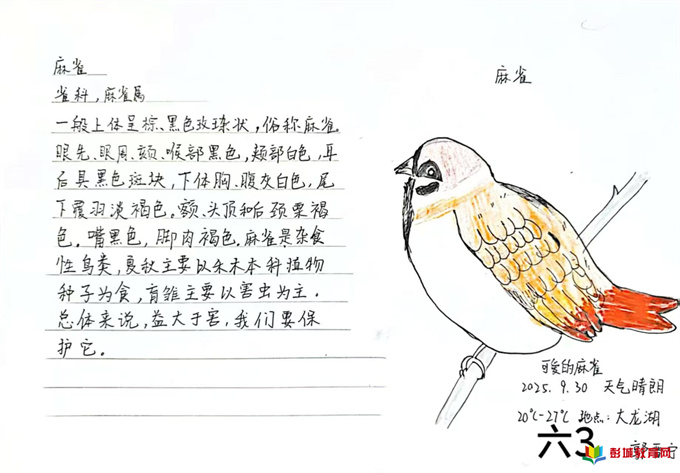 麻雀
雀科，麻雀属
一般上体呈棕、黑色玫瑰状，俗称麻雀
眼先、眼周、颏、喉部黑色，颊部白色，耳
后具黑色斑块，下体胸、腹灰白色，尾
下覆羽淡褐色，额、头顶和后颈栗褐
色。嘴黑色，脚肉褐色，麻雀是杂食
性鸟类，夏秋主要以禾木本科植物
种子为食，育雏主要以害虫为主.
总体来说，益大于害，我们要保
护它。
麻雀
可爱的麻雀
2025.9.30 天气晴朗
20℃-27℃ 地点：大龙湖
六3
彭城教育网